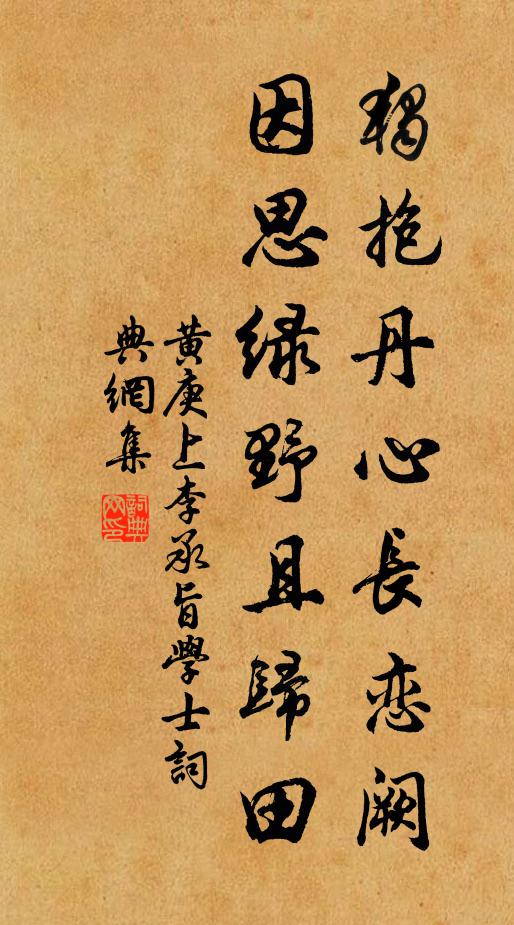 獨抱丹心長恋闕
因思綠野且歸田
黃庚上李承旨學士詞
典網集
詞典
网印